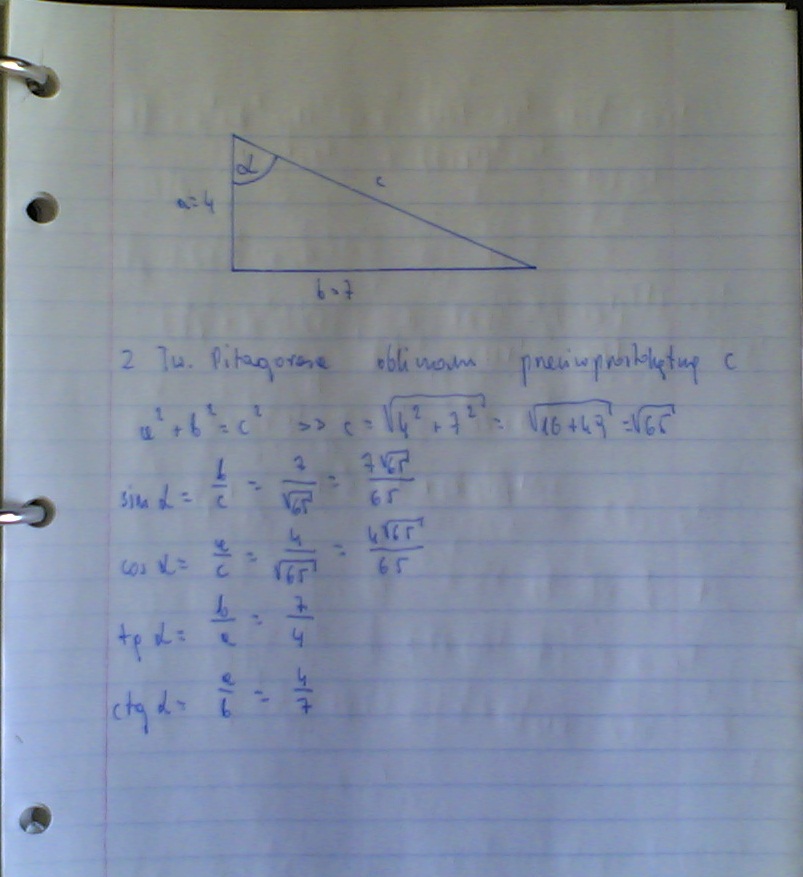 α
c
a=4
b=7
Z Tw. Pitagorasa obliczam przeciwprostokątną c
a² + b² = c² >> c = √(4² + 7²) = √(16+49) = √65
sin α = b/c = 7/√65 = 7√65/65
cos α = a/c = 4/√65 = 4√65/65
tg α = b/a = 7/4
ctg α = a/b = 4/7